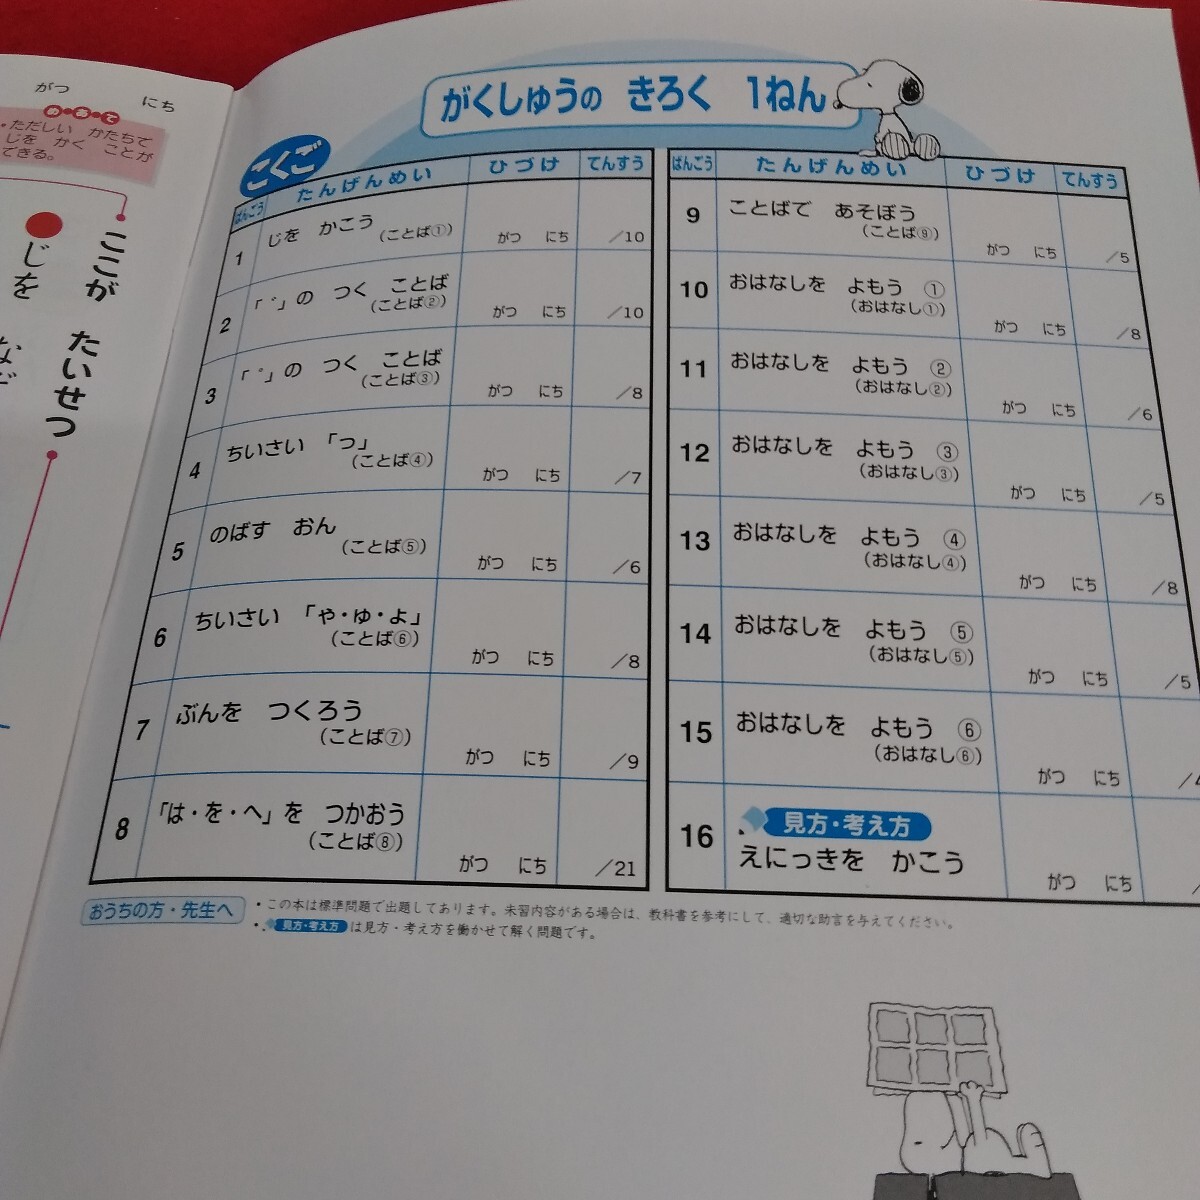 がつ にち
め・あ・て
・ただしい かたちで
じを かく ことが
できる。
ここが たいせつ
じを
など
がくしゅうの きろく 1ねん
こくご
ばんごう たんげんめい ひづけ てんすう
1 じを かこう (ことば①) がつ にち /10
2 「゛」の つく ことば (ことば②) がつ にち /10
3 「゜」の つく ことば (ことば③) がつ にち /8
4 ちいさい 「っ」 (ことば④) がつ にち /7
5 のばす おん (ことば⑤) がつ にち /6
6 ちいさい 「ゃ・ゅ・ょ」 (ことば⑥) がつ にち /8
7 ぶんを つくろう (ことば⑦) がつ にち /9
8 「は・を・へ」を つかおう (ことば⑧) がつ にち /21
ばんごう たんげんめい ひづけ てんすう
9 ことばで あそぼう (ことば⑨) がつ にち /5
10 おはなしを よもう ① (おはなし①) がつ にち /8
11 おはなしを よもう ② (おはなし②) がつ にち /6
12 おはなしを よもう ③ (おはなし③) がつ にち /5
13 おはなしを よもう ④ (おはなし④) がつ にち /8
14 おはなしを よもう ⑤ (おはなし⑤) がつ にち /5
15 おはなしを よもう ⑥ (おはなし⑥) がつ にち /
16 見方・考え方 えにっきを かこう がつ にち /
おうちの方・先生へ
・この本は標準問題で出題してあります。未習内容がある場合は、教科書を参考にして、適切な助言を与えてください。
・見方・考え方 は見方・考え方を働かせて解く問題です。